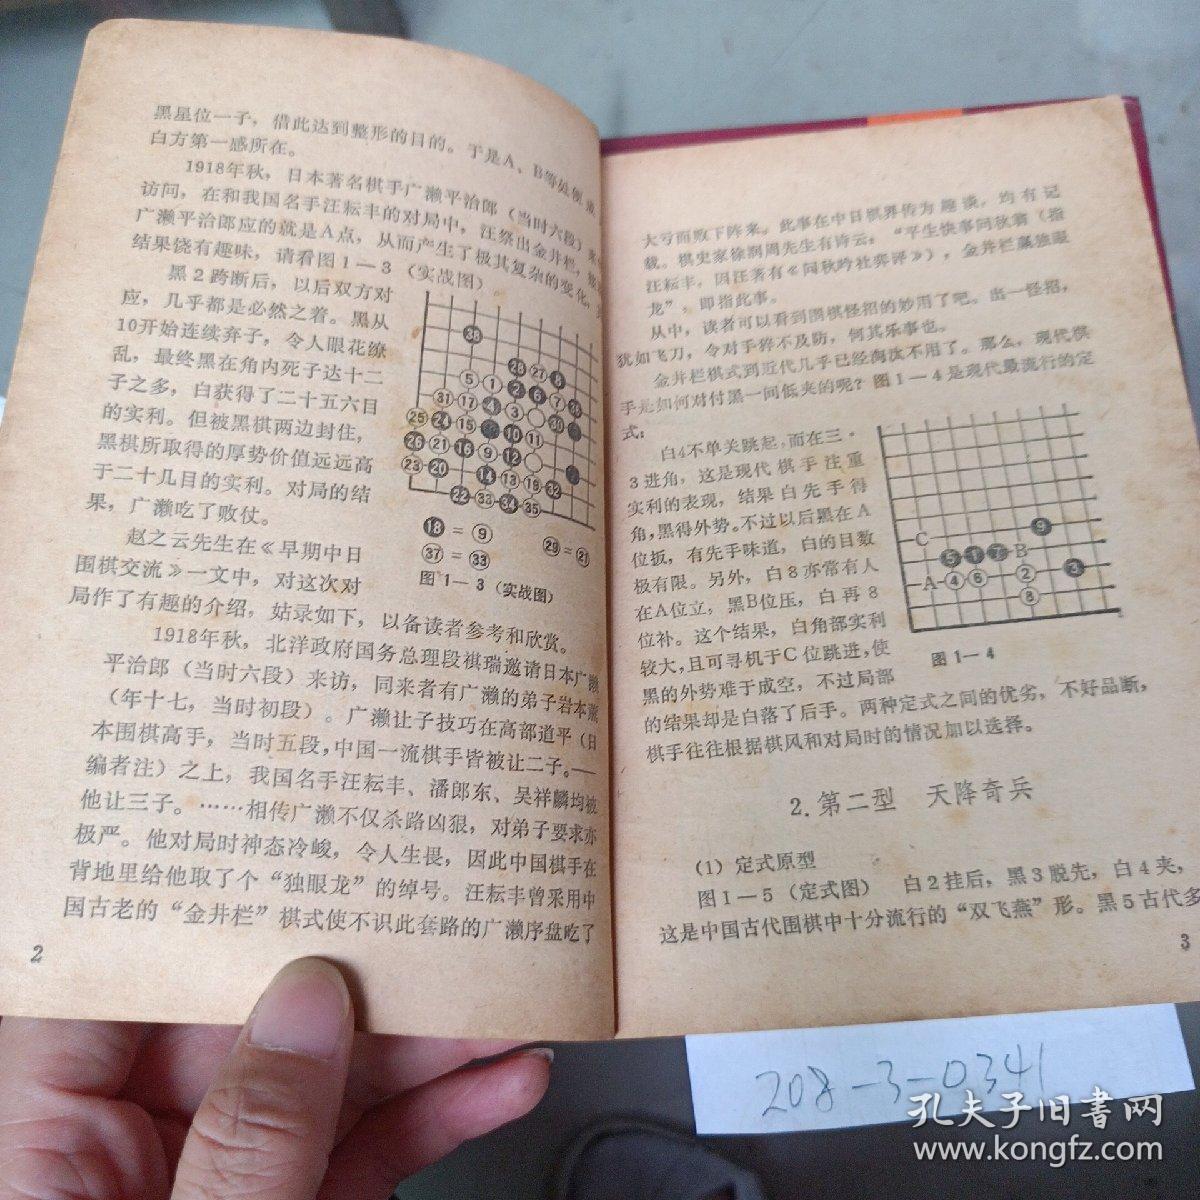 黑星位一子，借此达到整形的目的。于是A、B等处便
白方第一感所在。
1918年秋，日本著名棋手广濑平治郎（当时六段）来
访问，在和我国名手汪耘丰的对局中，汪祭出金井栏，
广濑平治郎应的就是A点，从而产生了极其复杂的变化，
结果饶有趣味，请看图1—3（实战图）
黑2跨断后，以后双方对
应，几乎都是必然之着。黑从
10开始连续弃子，令人眼花缭
乱，最终黑在角内死子达十二
子之多，白获得了二十五六目
的实利。但被黑棋两边封住，
黑棋所取得的厚势价值远远高
于二十几目的实利。对局的结
果，广濑吃了败仗。
赵之云先生在《早期中日
围棋交流》一文中，对这次对
局作了有趣的介绍，姑录如下，以备读者参考和欣赏。
⑱=⑨ ㉙=㉑
㊲=㉝
图1—3（实战图）
1918年秋，北洋政府国务总理段祺瑞邀请日本广濑
平治郎（当时六段）来访，同来者有广濑的弟子岩本薰
（年十七，当时初段）。广濑让子技巧在高部道平（日
本围棋高手，当时五段，中国一流棋手皆被让二子。——
编者注）之上，我国名手汪耘丰、潘郎东、吴祥麟均被
他让三子。……相传广濑不仅杀路凶狠，对弟子要求亦
极严。他对局时神态冷峻，令人生畏，因此中国棋手在
背地里给他取了个“独眼龙”的绰号。汪耘丰曾采用中
国古老的“金井栏”棋式使不识此套路的广濑序盘吃了
2
大亏而败下阵来。此事在中日棋界传为趣谈，均有记
载。棋史家徐润周先生有诗云，“平生快事问秋霸（指
汪耘丰，因汪著有《问秋吟社弈评》），金井栏赢独眼
龙”，即指此事。
从中，读者可以看到围棋怪招的妙用了吧。出一怪招，
犹如飞刀，令对手猝不及防，何其乐事也。
金井栏棋式到近代几乎已经淘汰不用了。那么，现代棋
手是如何对付黑一间低夹的呢？图1—4是现代最流行的定
式：
白4不单关跳起，而在三·
3进角，这是现代棋手注重
实利的表现，结果白先手得
角，黑得外势。不过以后黑在A
位扳，有先手味道，白的目数
极有限。另外，白8亦常有人
在A位立，黑B位压，白再8
位补。这个结果，白角部实利
较大，且可寻机于C位跳进，使
黑的外势难于成空，不过局部
的结果却是白落了后手。两种定式之间的优劣，不好品断，
棋手往往根据棋风和对局时的情况加以选择。
C
B
A
图1—4
2.第二型 天降奇兵
（1）定式原型
图1—5（定式图） 白2挂后，黑3脱先，白4夹，
这是中国古代围棋中十分流行的“双飞燕”形。黑5古代多
3
208-3-0341
孔夫子旧书网
www.kongfz.com